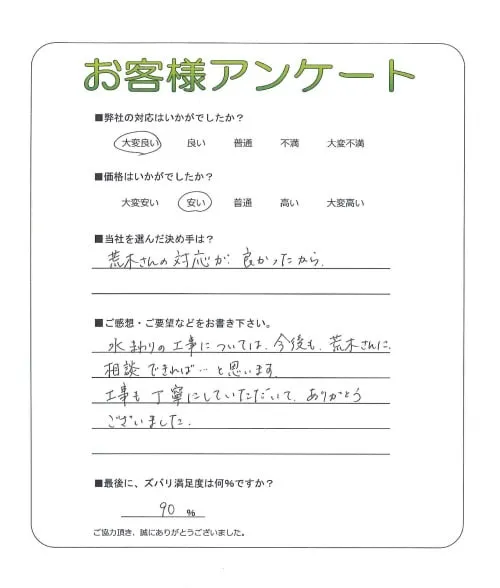 お客様アンケート
■弊社の対応はいかがでしたか？
大変良い 良い 普通 不満 大変不満
■価格はいかがでしたか？
大変安い 安い 普通 高い 大変高い
■当社を選んだ決め手は？
荒木さんの対応が良かったから。
■ご感想・ご要望などをお書き下さい。
水まわりの工事については、今後も、荒木さんに、
相談できれば…と思います。
工事も丁寧にしていただいて、ありがとう
ございました。
■最後に、ズバリ満足度は何％ですか？
90 %
ご協力頂き、誠にありがとうございました。